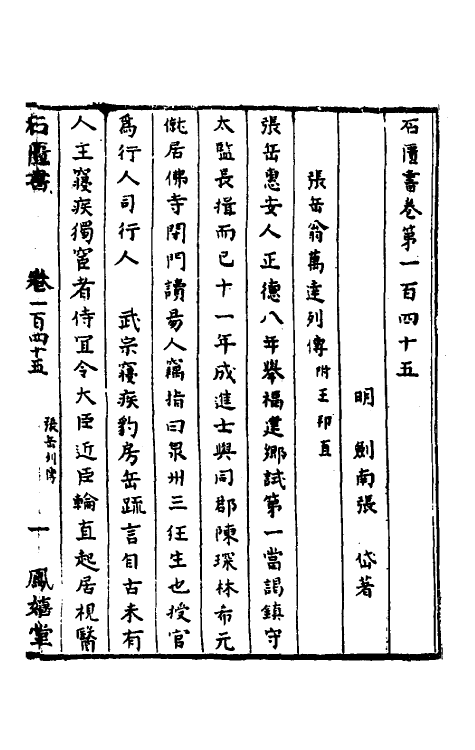 石匱書卷第一百四十五
明 劍南張 岱著
張岳翁萬達列傳附王邦直
張岳惠安人正德八年舉福建鄉試第一當謁鎮守
太監長揖而已十一年成進士與同郡陳琛林希元
僦居佛寺閉門讀易人竊指曰泉州三狂生也授官
爲行人司行人 武宗寢疾豹房岳疏言自古未有
人主寢疾獨宦者侍冝令大臣近臣輪直起居視醫
石匱書 卷一百四十五 張岳列傳 一 鳳嬉堂